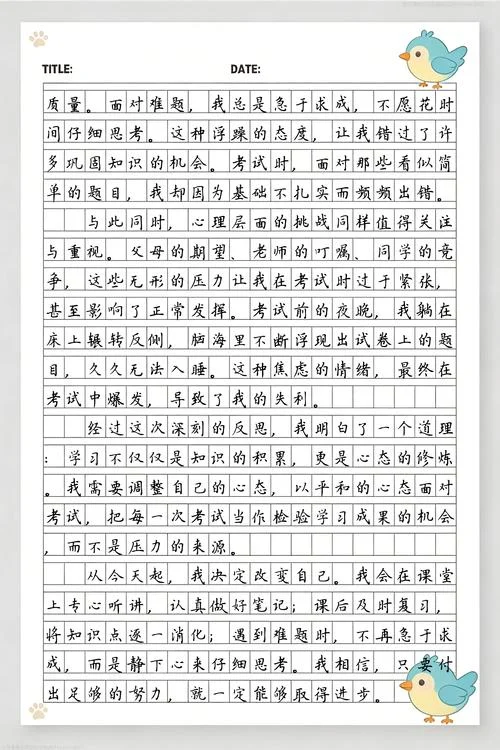 TITLE: DATE:
质量。面对难题，我总是急于求成，不愿花时
间仔细思考。这种浮躁的态度，让我错过了许
多巩固知识的机会。考试时，面对那些看似简
单的题目，我却因为基础不扎实而频频出错。
与此同时，心理层面的挑战同样值得关注
与重视。父母的期望、老师的叮嘱、同学的竞
争，这些无形的压力让我在考试时过于紧张，
甚至影响了正常发挥。考试前的夜晚，我躺在
床上辗转反侧，脑海里不断浮现出试卷上的题
目，久久无法入睡。这种焦虑的情绪，最终在
考试中爆发，导致了我的失利。
经过这次深刻的反思，我明白了一个道理
：学习不仅仅是知识的积累，更是心态的修炼
。我需要调整自己的心态，以平和的心态面对
考试，把每一次考试当作检验学习成果的机会
，而不是压力的来源。
从今天起，我决定改变自己。我会在课堂
上专心听讲，认真做好笔记；课后及时复习，
将知识点逐一消化；遇到难题时，不再急于求
成，而是静下心来仔细思考。我相信，只要付
出足够的努力，就一定能够取得进步。